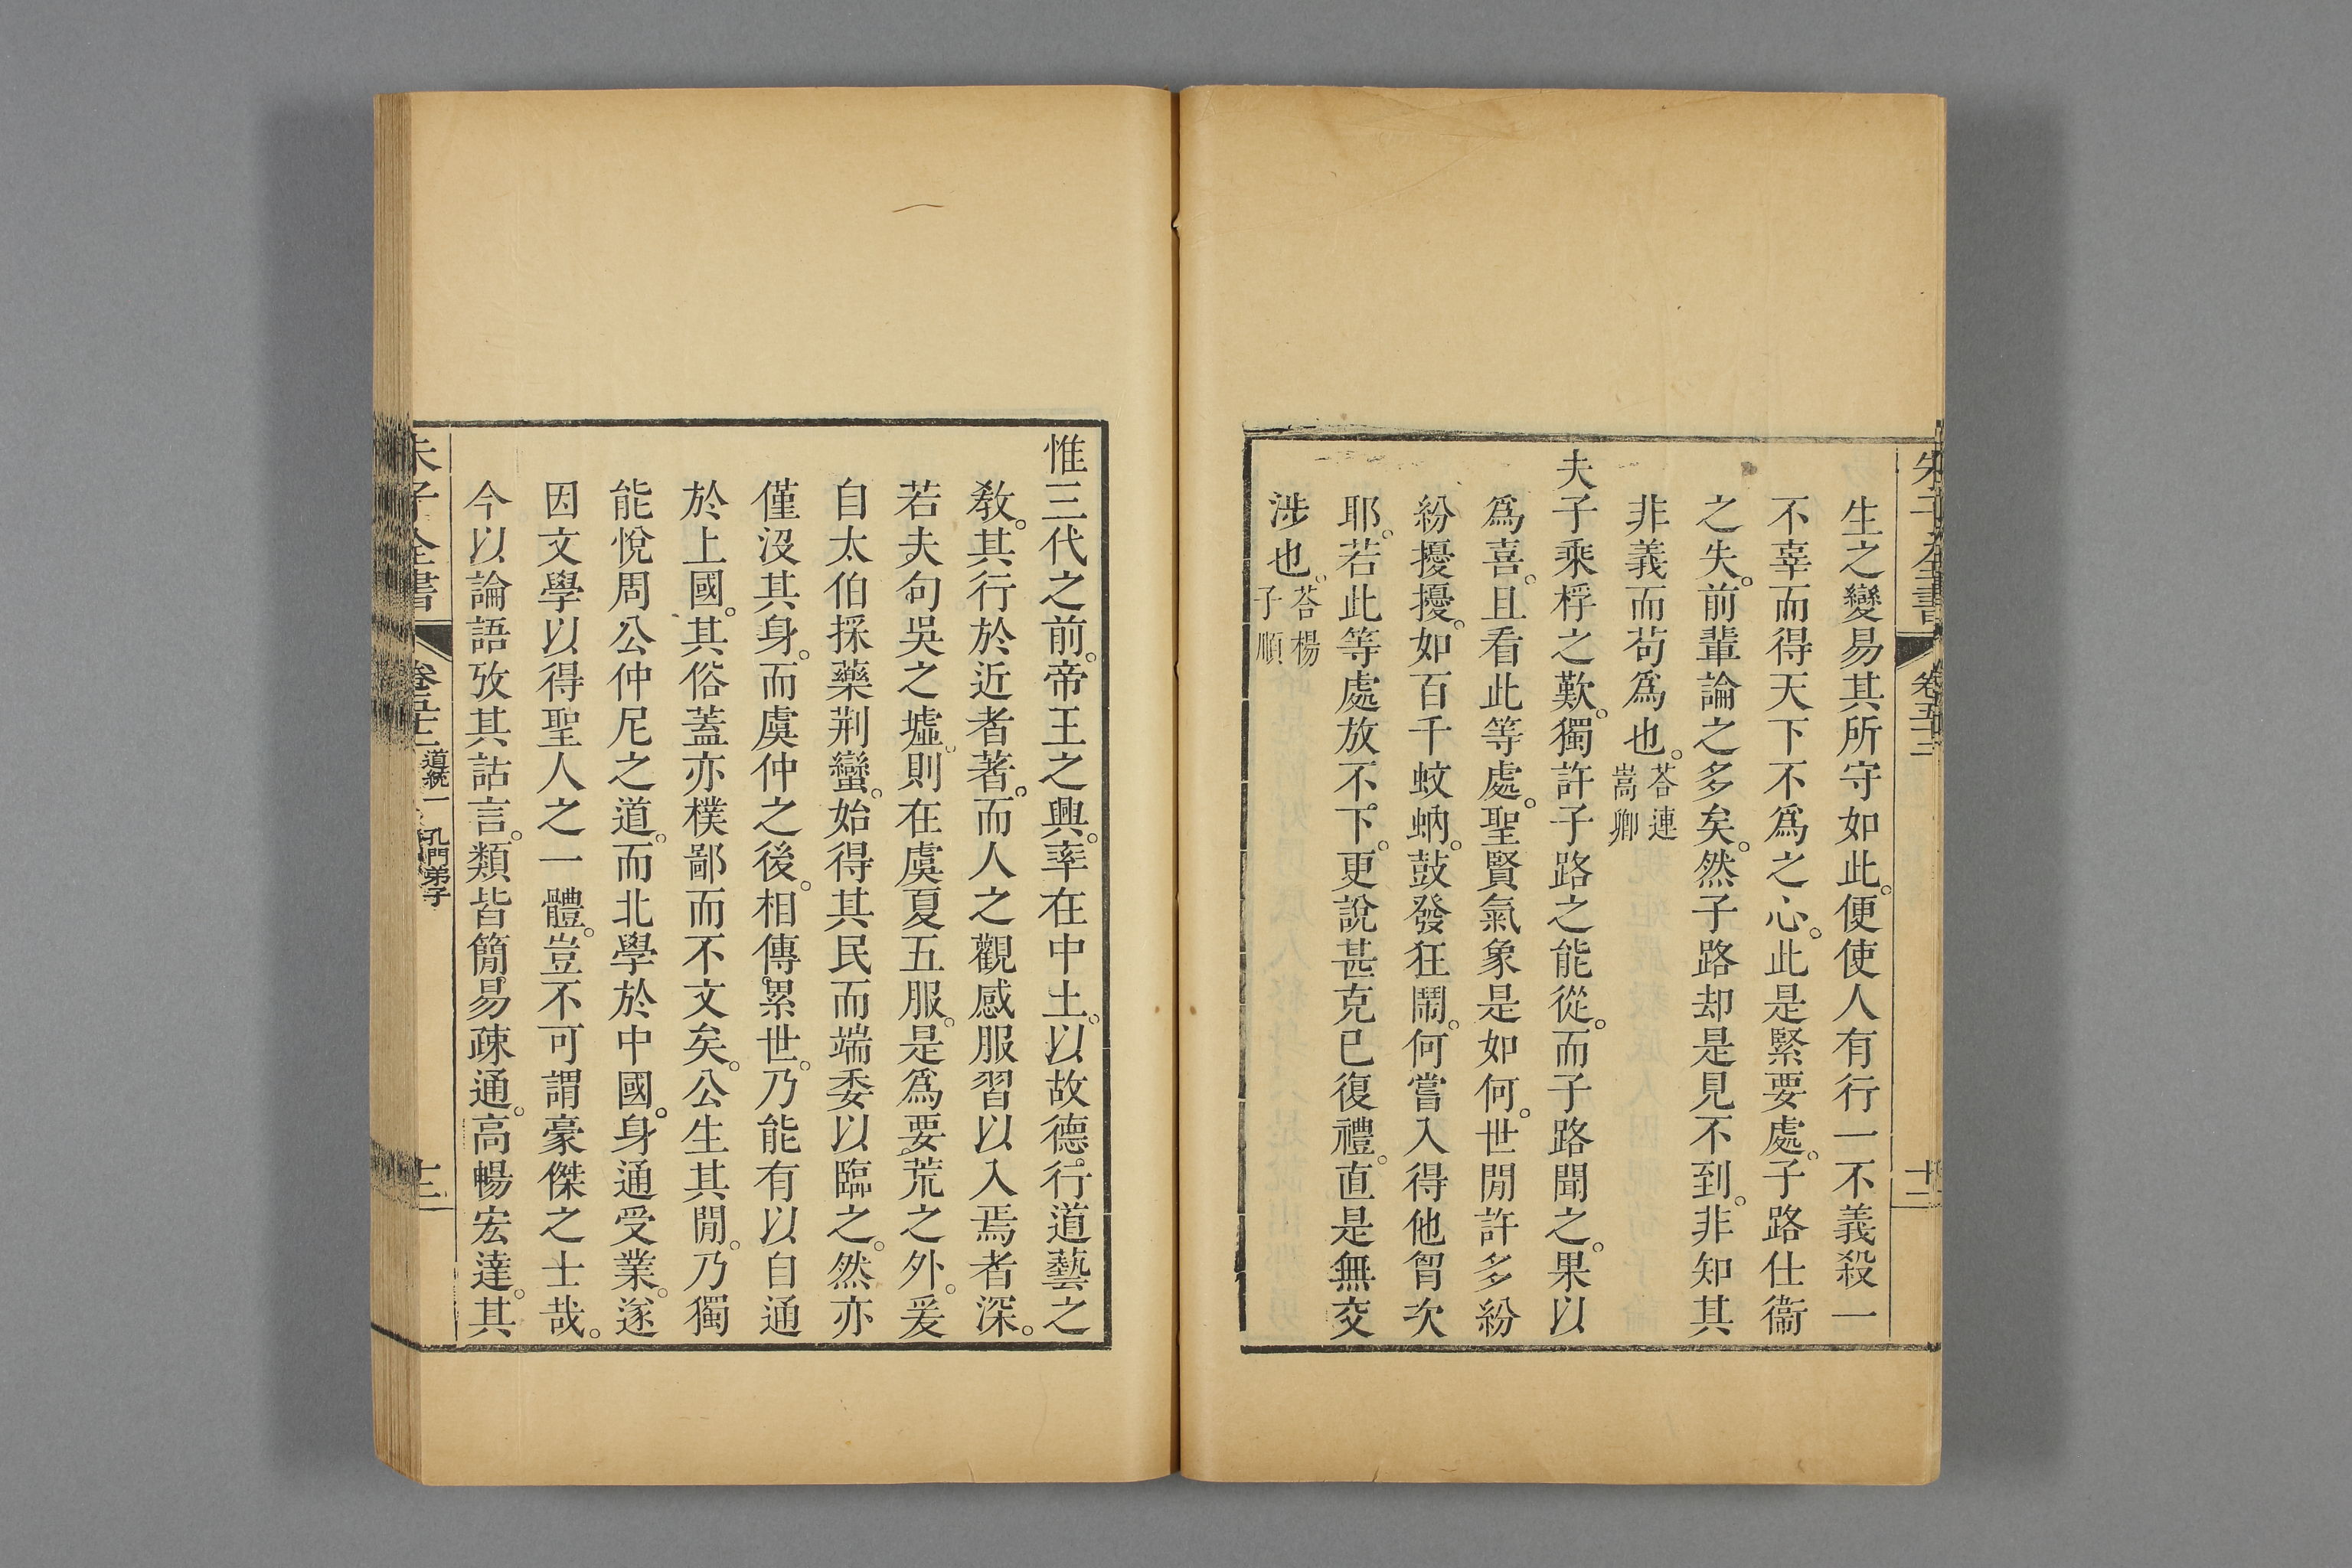 朱子全書 卷五十三 十二
生之變易其所守如此。便使人有行一不義殺一
不辜而得天下不為之心。此是緊要處。子路仕衞
之失。前輩論之多矣。然子路却是見不到。非知其
非義而苟為也。荅連嵩卿
夫子乘桴之歎。獨許子路之能從。而子路聞之。果以
為喜。且看此等處。聖賢氣象是如何。世閒許多紛
紛擾擾。如百千蚊蚋。鼓發狂鬧。何嘗入得他胷次
耶。若此等處放不下。更說甚克已復禮。直是無交
涉也。荅楊子順
惟三代之前。帝王之興。率在中土。以故德行道藝之
敎。其行於近者著。而人之觀感服習以入焉者深。
若夫句吳之墟。則在虞夏五服。是為要荒之外。爰
自太伯採藥荆蠻。始得其民而端委以臨之。然亦
僅沒其身。而虞仲之後。相傳累世。乃能有以自通
於上國。其俗蓋亦樸鄙而不文矣。公生其閒。乃獨
能悅周公仲尼之道。而北學於中國。身通受業。遂
因文學以得聖人之一體。豈不可謂豪傑之士哉。
今以論語攷其話言。類皆簡易疎通。高暢宏達。其
朱子全書 卷五十三 道統一 孔門弟子 十三